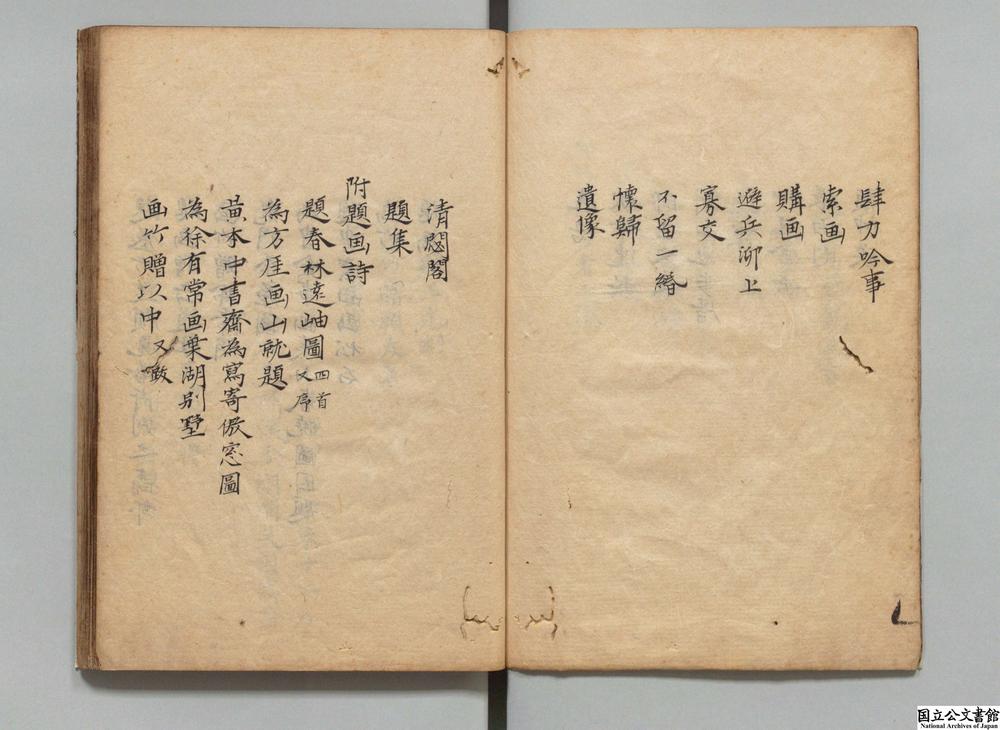 肆力吟事
索画
購画
避兵泖上
寡交
不留一緡
懷歸
遺像
清閟閣
題集
附題画詩
題春林遠岫圖 四首又序
為方厓画山就題
黄本中書齋為寫寄傲窓圖
為徐有常画葉湖别墅
画竹贈以中又徵
国立公文書館
National Archives of Japan